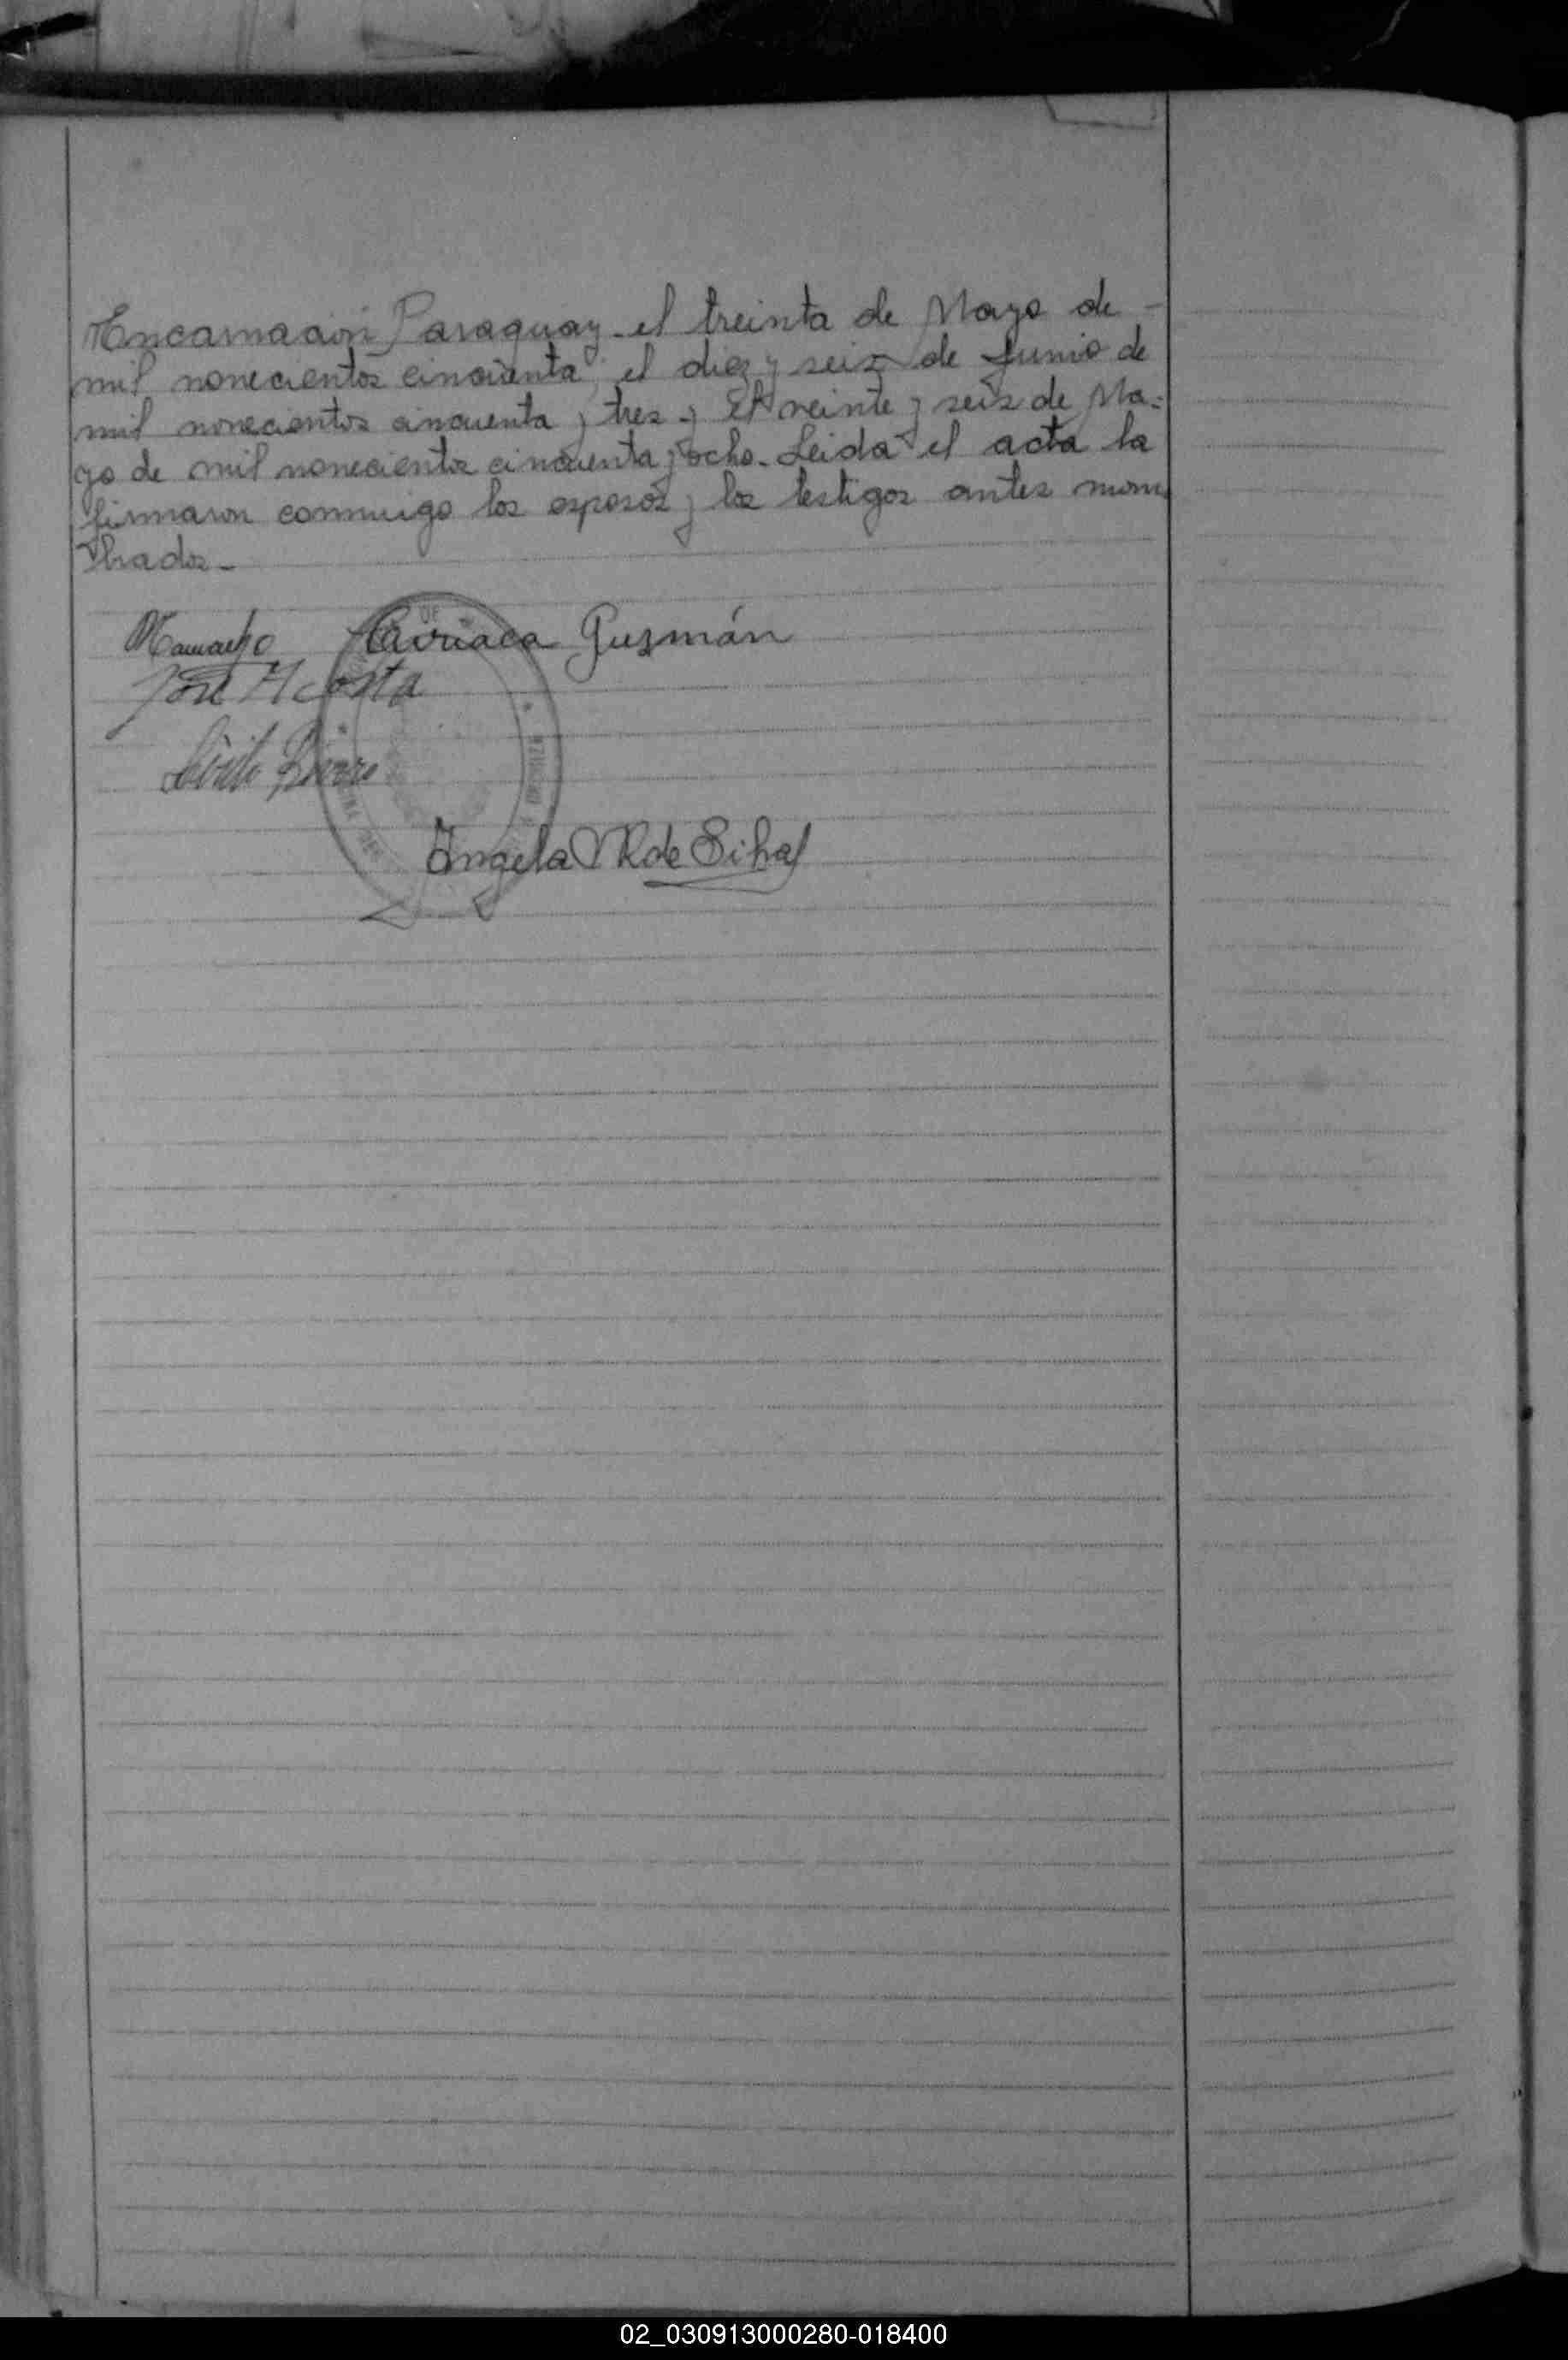 Encarnación Paraguay - el treinta de Mayo de -
mil novecientos cincuenta; el diez y seis de Junio de
mil novecientos cincuenta y tres y El veinte y seis de Ma=
yo de mil novecientos cincuenta y ocho. Leida el acta la
firmaron conmigo los esposos y los testigos antes nom
brados -
Camacho Ciriaca Guzmán
José Acosta
Angela R de Silva
02_030913000280-018400